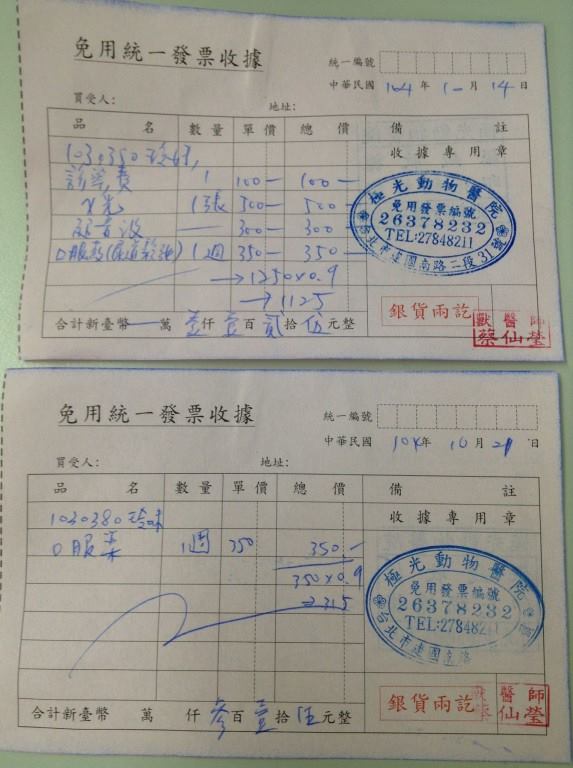 免用統一發票收據
統一編號
中華民國 104 年 10 月 14 日
買受人: 地址:
品 名 數量 單價 總 價 備 註
收據專用章
1030380
診察費 1 100- 100-
X光 1張 500- 500-
超音波 300- 300-
口服藥( ) 1週 350- 350-
→1250×0.9
→1125
極光動物醫院
免用發票編號
26378232
TEL:27848211
台北市建國南路二段31號
銀貨兩訖
獸醫師
蔡仙瑩
合計新臺幣 萬 壹仟壹百貳拾伍元整
免用統一發票收據
統一編號
中華民國 104 年 10 月 21 日
買受人: 地址:
品 名 數量 單價 總 價 備 註
收據專用章
1030380
口服藥 1週 350 350-
350×0.9
315
極光動物醫院
免用發票編號
26378232
TEL:27848211
台北市建國南路
銀貨兩訖
獸醫師
蔡仙瑩
合計新臺幣 萬 仟 參百壹拾伍元整